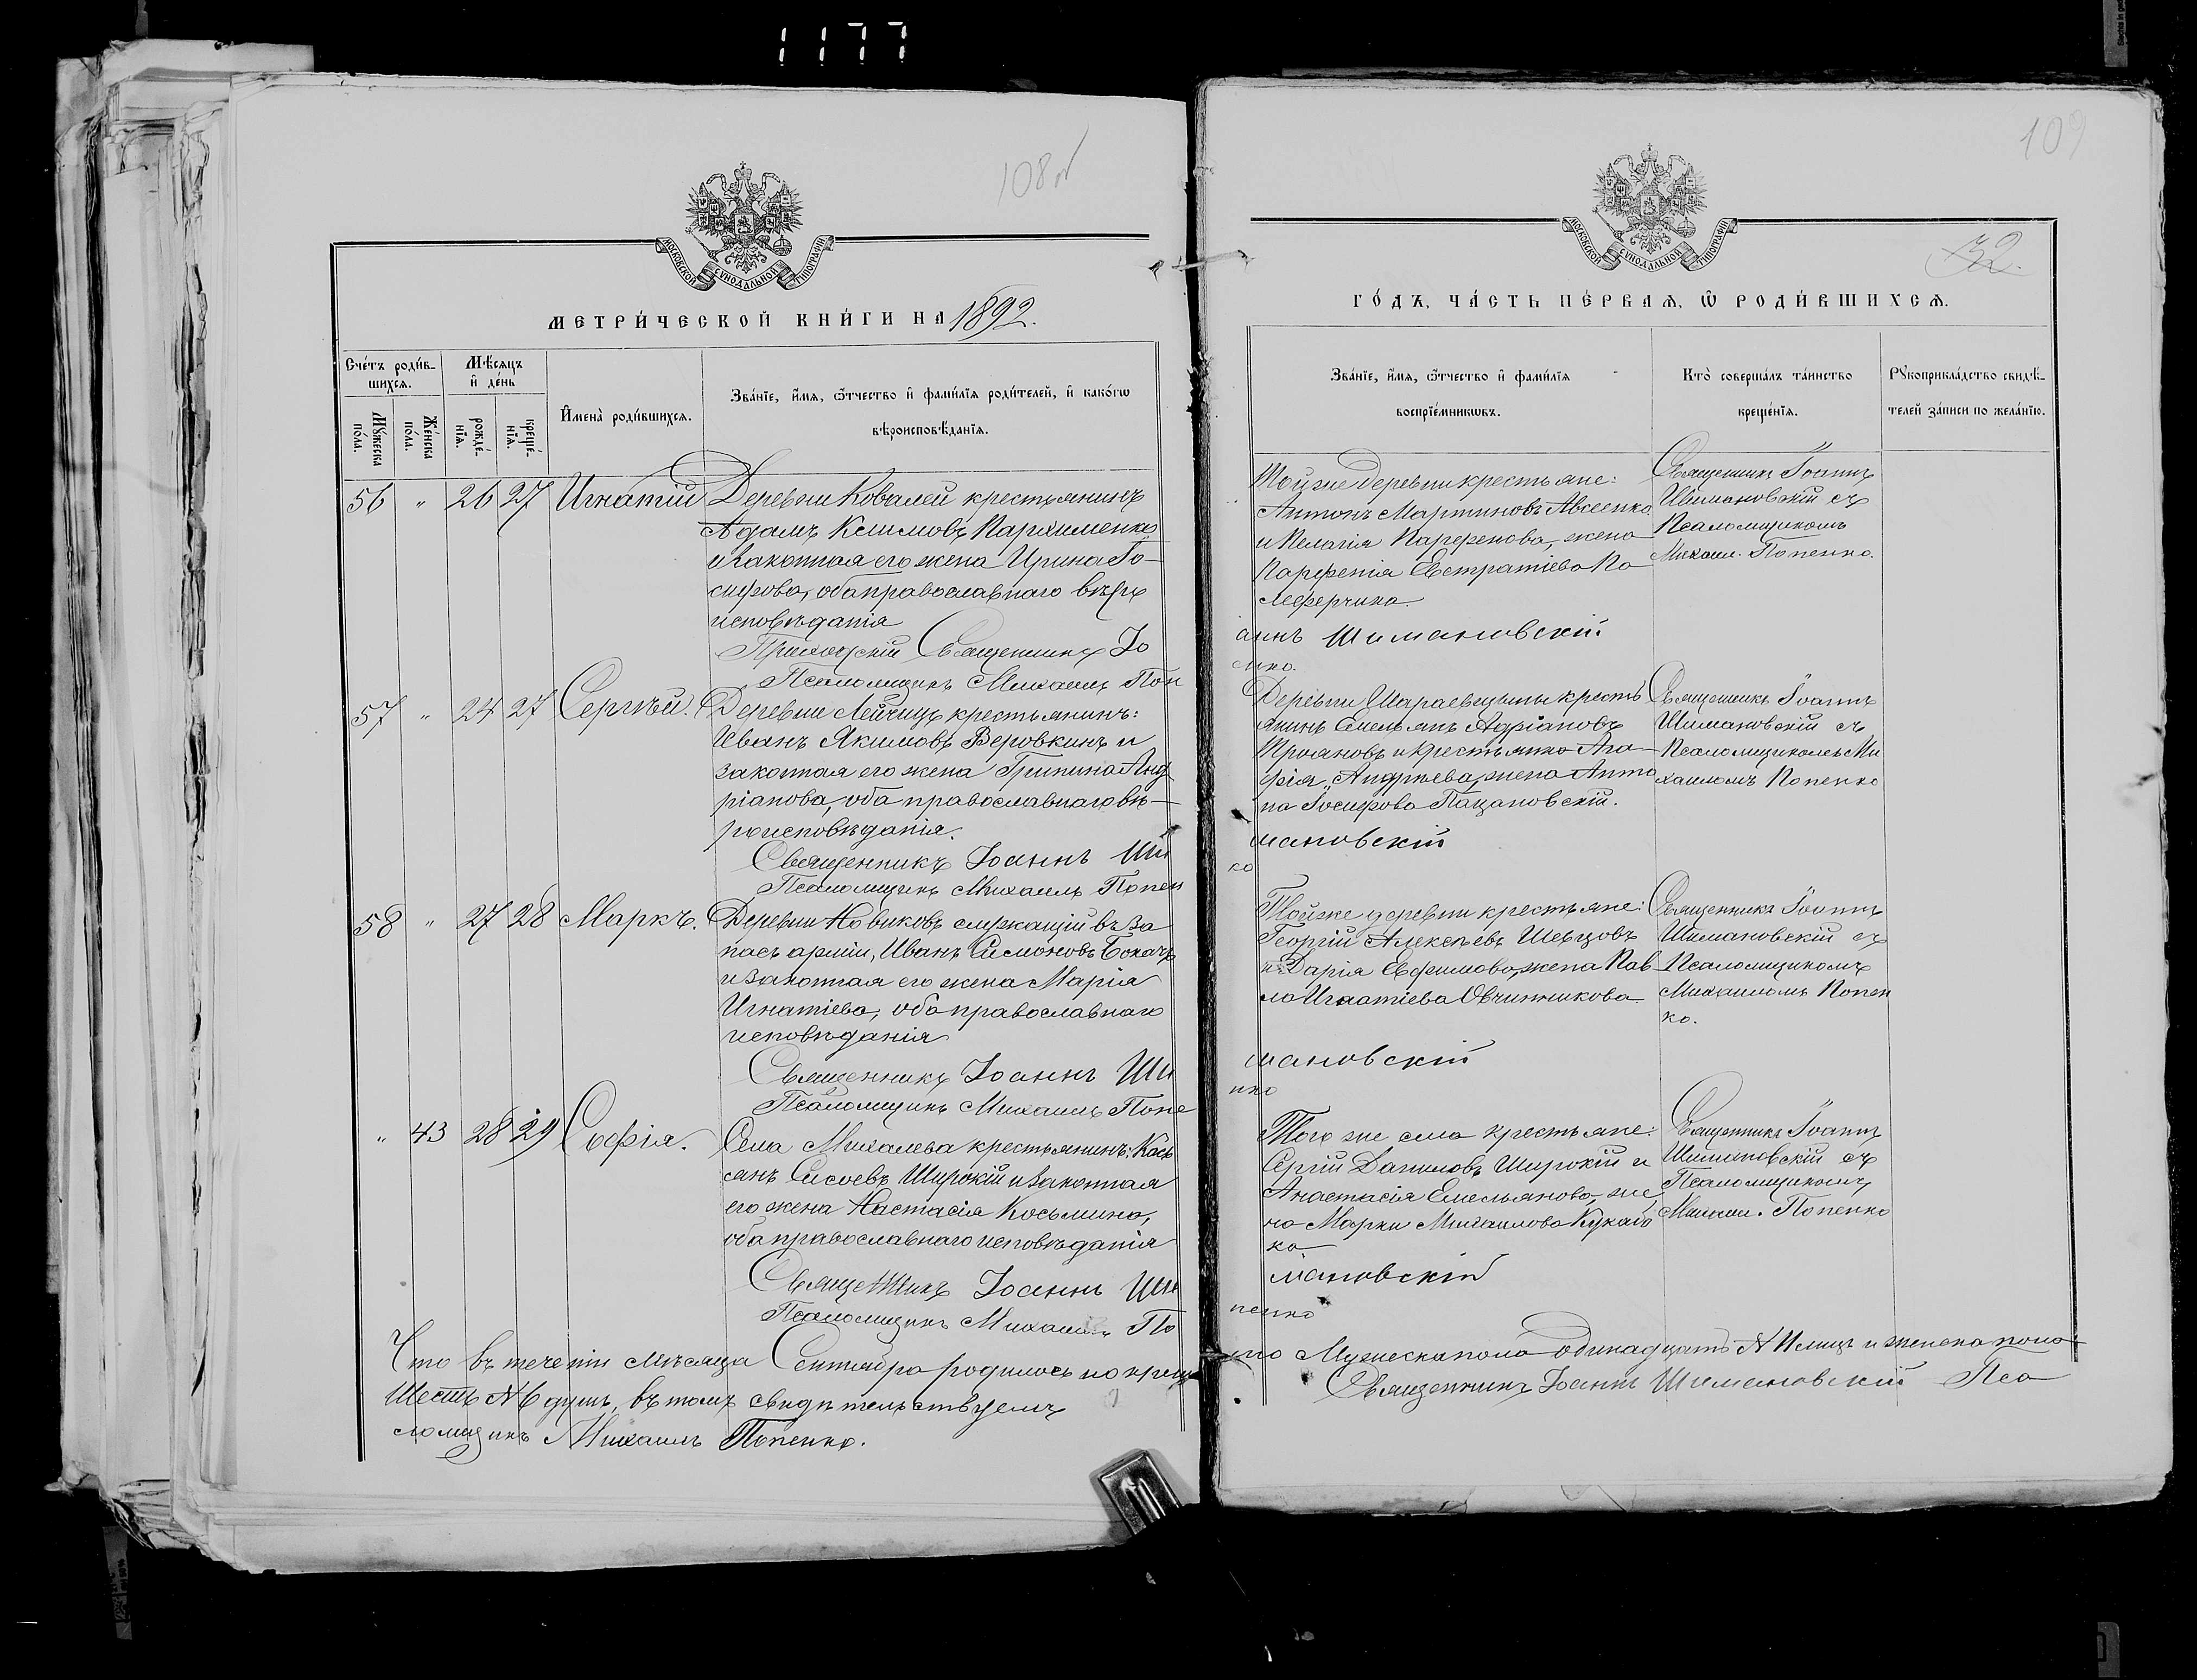 1177
108об
МОСКОВСКОЙ СѴНОДАЛЬНОЙ ТИПОГРАФІИ
МЕТРИ́ЧЕСКОЙ КНИ́ГИ НА 1892.
Сче́тъ роди́в-
шихся.
Мѣ́сяцъ
и҆ де́нь
Мꙋ́жеска
по́ла.
Же́нска
по́ла.
рожде́-
нїѧ.
креще́-
нїѧ.
И҆мена̀ роди́вшихсѧ.
Зва́нїе, и҆́мѧ, ѻ҆́тчество и҆ фами́лїѧ роди́телей, и҆ како́гѡ
вѣроисповѣ́данїѧ.
56 " 26 27 Игнатій Деревни Ковалей крестьянинъ
Адамъ Климовъ Пархименко
и законная его жена Ирина Іо-
сифова, оба православнаго вѣро
исповѣданія
Приходскій Священникъ Іо
Псаломщикъ Михаилъ Поп
57 " 24 27 Сергѣй. Деревни Лейчицъ крестьянинъ:
Иванъ Якимовъ Веровкинъ и
законная его жена Грипина Анд
ріанова, оба православнаго вѣ-
роисповѣданія.
Священникъ Іоаннъ Ши
Псаломщикъ Михаилъ Попен
58 " 27 28 Маркъ. Деревни Новиковъ служащій въ за
пасъ арміи, Иванъ Симоновъ
и законная его жена Марія
Игнатіева, оба православнаго
исповѣданія
Священникъ Іоаннъ Ши
Псаломщикъ Михаилъ Попе
" 43 28 29 Софія. Села Михалева крестьянинъ: Кась
янъ Сисоевъ Широкій и законная
его жена Настасія Косьмина,
оба православнаго исповѣданія
Священникъ Іоаннъ Ши
Псаломщикъ Михаилъ По
Что въ теченіи мѣсяца Сентября родилось и креще
шесть №6 душъ, въ томъ свидѣтельствуемъ
ломщикъ Михаилъ Попенко.
109
32.
МОСКОВСКОЙ СѴНОДАЛЬНОЙ ТИПОГРАФІИ
ГО́ДЪ, ЧА́СТЬ ПЕ́РВАѦ, Ѡ҆ РОДИ́ВШИХСѦ.
Зва́нїе, и҆́мѧ, ѻ҆́тчество и҆ фами́лїѧ
воспрїе́мникѡвъ.
Кто̀ соверша́лъ та́инство
креще́нїѧ.
Рꙋкоприкла́дство свидѣ́-
телей за́писи по жела́нїю.
Той же деревни крестьяне:
Антонъ Мартиновъ Авсеенко
и Пелагія Парфенова, жена
Парфенія Евстратіева По
леферчика.
аннъ Шимановскій
енко.
Священникъ Іоаннъ
Шимановскій съ
Псаломщикомъ
Михаил. Попенко.
Деревни Шараевщины кресть
янинъ Емельянъ Адріановъ
Трояновъ и крестьянка Ага-
фія Андреева, жена Анто
на Іосифова Пацановскій.
мановскій
ко
Священникъ Іоаннъ
Шимановскій съ
Псаломщикомъ Ми
хаиломъ Попенко
Той же деревни крестьяне:
Георгій Алексѣевъ Шевцовъ
и Дарія Ефимова, жена Пав
ла Игнатіева Овчинникова
мановскій
нко
Священникъ Іоаннъ
Шимановскій съ
Псаломщикомъ
Михаиломъ Попен
ко.
Того же села крестьяне:
Сергій Даниловъ Широкій и
Анастасія Емельянова, же
на Марки Михаилова
ка
мановскій
пенко
Священникъ Іоаннъ
Шимановскій съ
Псаломщикомъ
Михаил. Попенко
но Мужеска пола одинадцать № 11 лицъ и женска пола
Священникъ Іоаннъ Шимановскій Пса